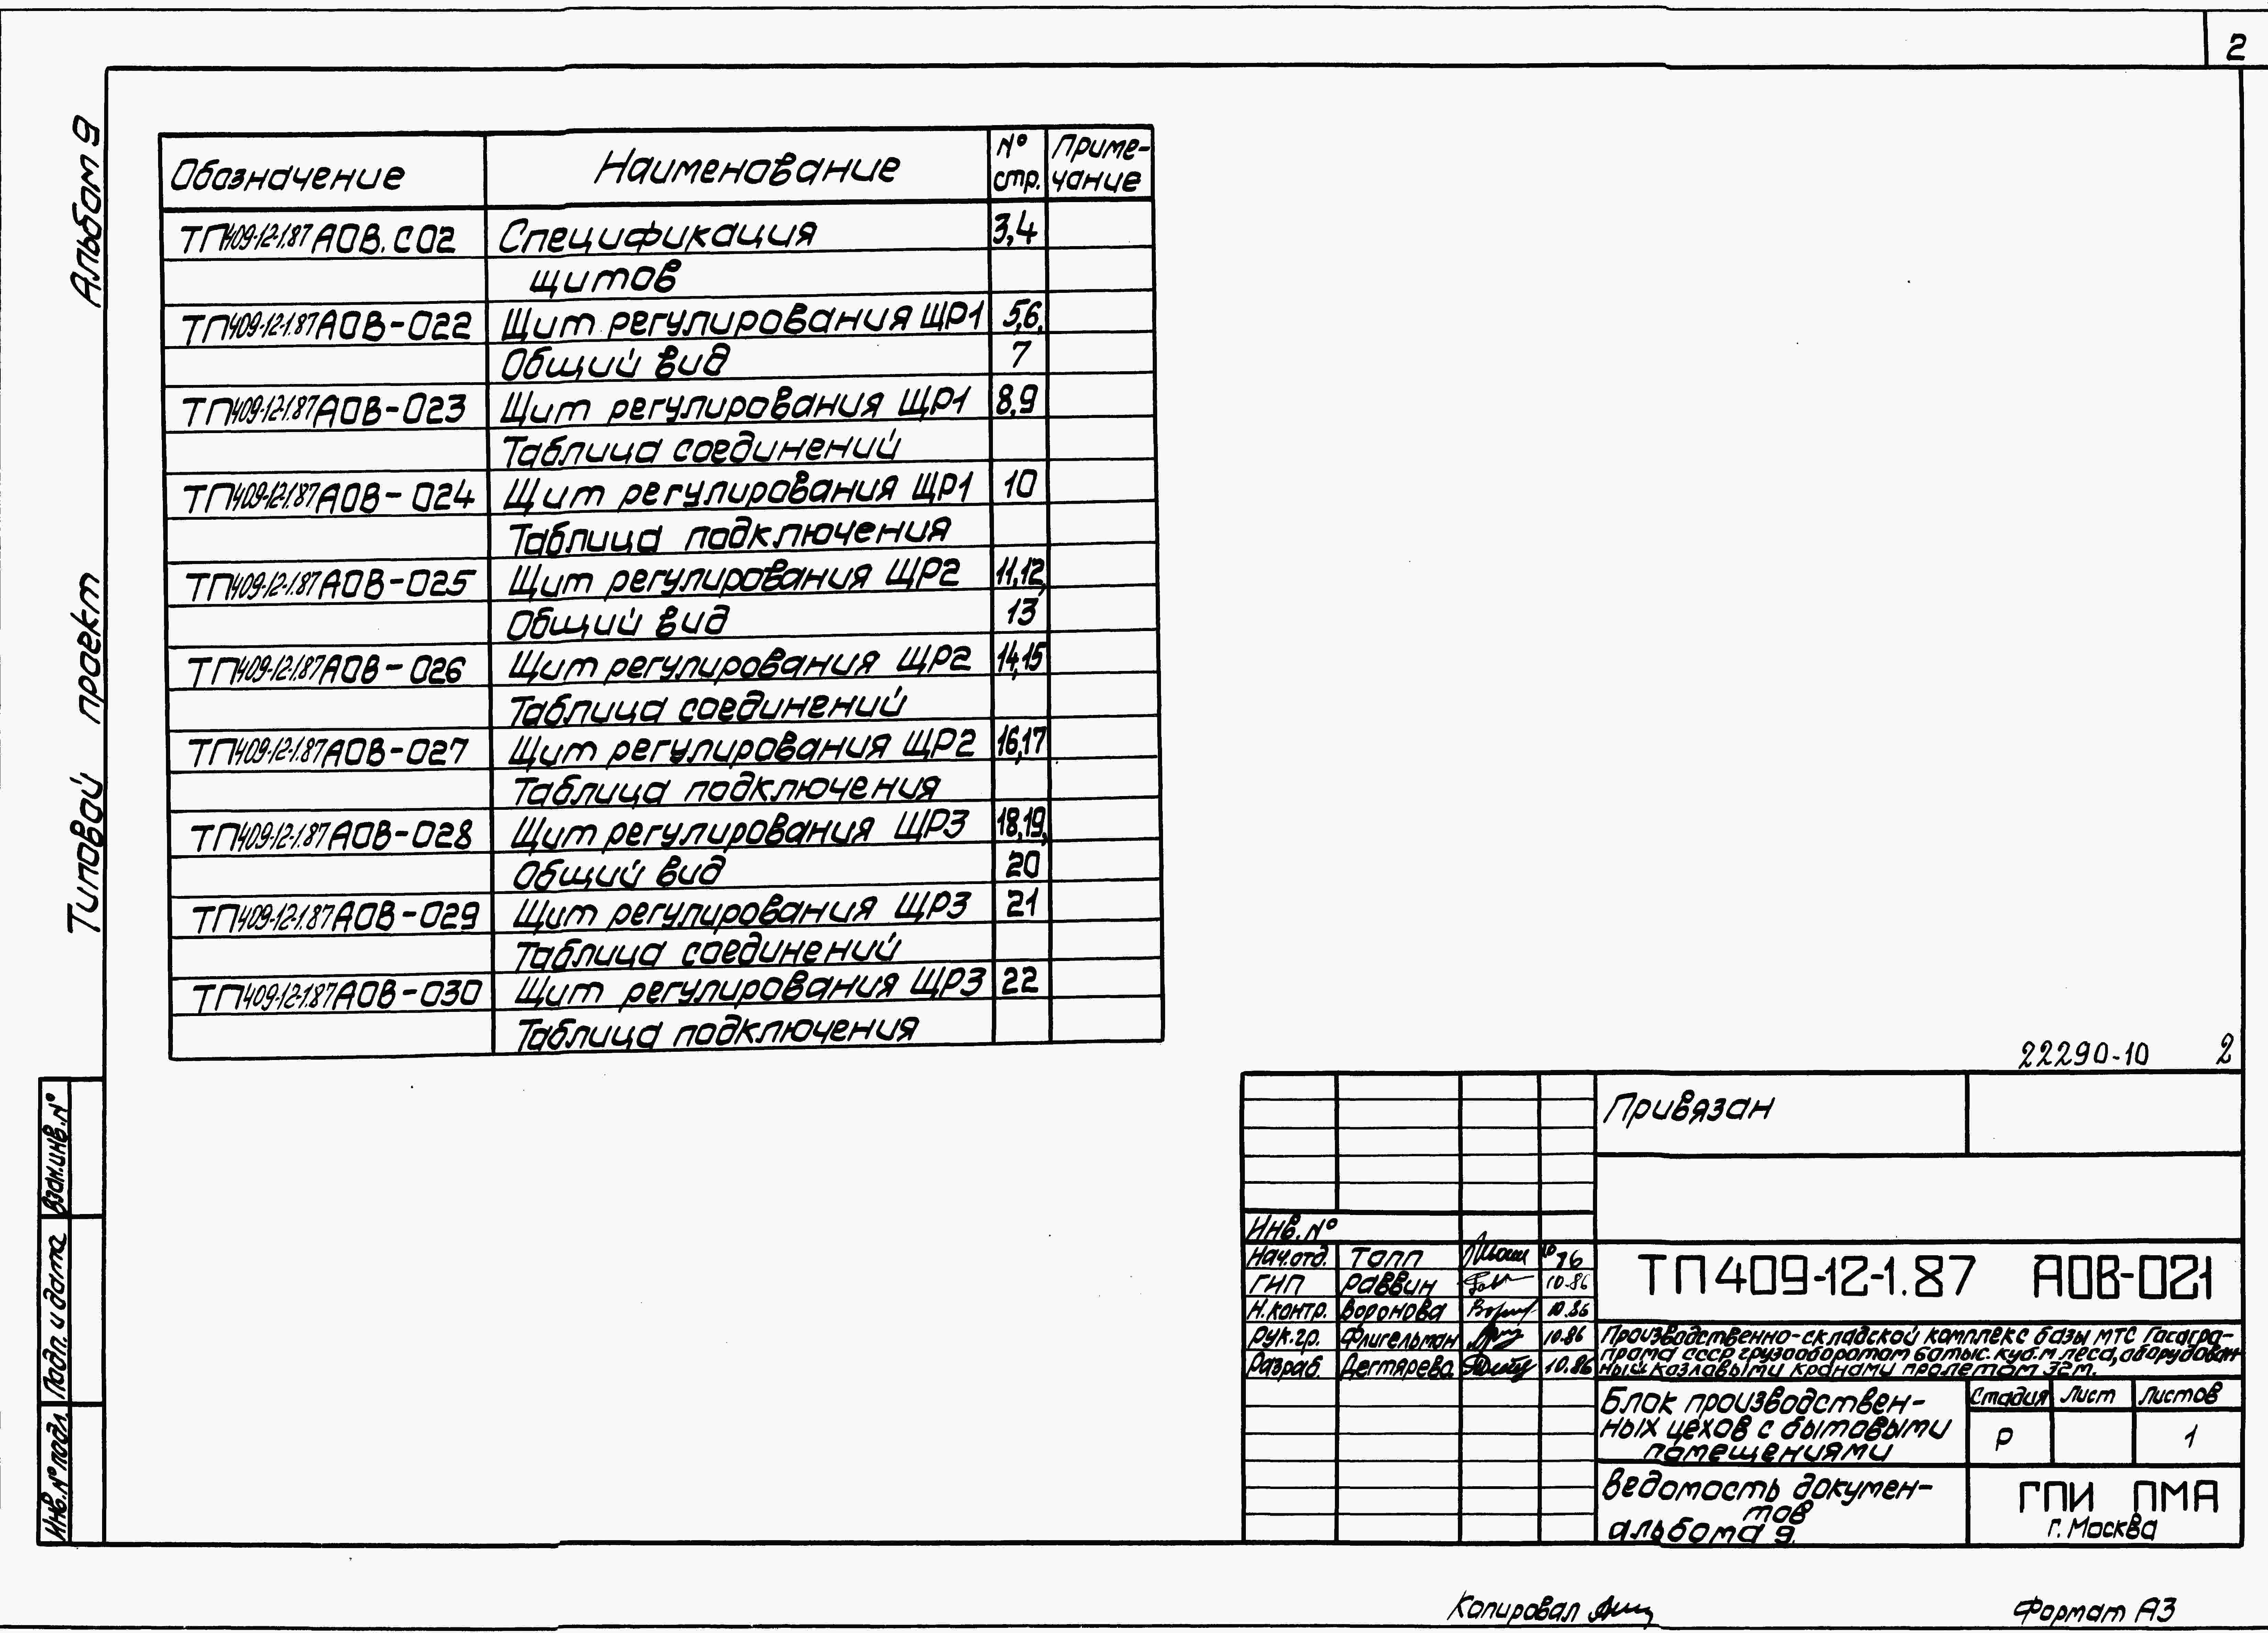 2
Альбом 9
Типовой проект
Обозначение Наименование № стр. Приме-чание
ТП409-12-1.87 АОВ.СО2 Спецификация 3,4
щитов
ТП409-12-1.87 АОВ-022 Щит регулирования ЩР1 5,6,
Общий вид 7
ТП409-12-1.87 АОВ-023 Щит регулирования ЩР1 8,9
Таблица соединений
ТП409-12-1.87 АОВ-024 Щит регулирования ЩР1 10
Таблица подключения
ТП409-12-1.87 АОВ-025 Щит регулирования ЩР2 11,12,
Общий вид 13
ТП409-12-1.87 АОВ-026 Щит регулирования ЩР2 14,15
Таблица соединений
ТП409-12-1.87 АОВ-027 Щит регулирования ЩР2 16,17
Таблица подключения
ТП409-12-1.87 АОВ-028 Щит регулирования ЩР3 18,19,
Общий вид 20
ТП409-12-1.87 АОВ-029 Щит регулирования ЩР3 21
Таблица соединений
ТП409-12-1.87 АОВ-030 Щит регулирования ЩР3 22
Таблица подключения
22290-10 2
Взам.инв.№
Подп. и дата
Инв.№ подл.
Привязан
Инв.№
Нач.отд. Топп
ГИП Раввин 10.86
Н.контр. Воронова 10.86
Рук.гр. Флигельман 10.86
Разраб. Дегтярева 10.86
ТП 409-12-1.87 АОВ-021
Производственно-складской комплекс базы МТС Госагро-
прома СССР грузооборотом 60тыс. куб.м леса, оборудован-
ный козловыми кранами пролетом 32м.
Блок производствен-
ных цехов с бытовыми
помещениями
Стадия Лист Листов
Р 1
Ведомость докумен-
тов
альбома 9.
ГПИ ПМА
г. Москва
Копировал
Формат А3